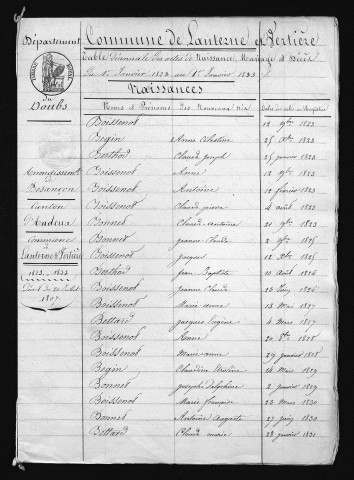 Département
du
Doubs
Arrondissement
de
Besançon
Canton
d'Audeux
Commune
de
Lanterne et Vertière
1823-1833
Commune de Lanterne et Vertière
Table Décennale des actes de Naissance, Mariage et Décès
du 1er Janvier 1823 au 1er Janvier 1833
Naissances
Noms et Prénoms des Nouveaux nés
Boissenot 12 9bre 1823
Begin Anne Célestine 25 Xbre 1823
Berthod Claude Joseph 25 janvier 1823
Boissenot Anne 12 9bre 1823
Boissenot Antoine 12 février 1823
Boissenot Claude pierre 4 août 1823
Bonnet Claude-Antoine 21 9bre 1823
Bonnet Jeanne Claude 2 9bre 1825
Boissenot Jacques 12 Xbre 1825
Berthod Jean Baptiste 10 août 1826
Boissenot Jeanne Claude 26 Juin 1826
Boissenot Marie-anne 18 Mai 1827
Bettard Jacques Eugène 4 Mars 1827
Boissenot Anne 20 8bre 1825
Boissenot Marie-anne 29 janvier 1828
Begin Claudine 14 Mars 1829
Bonnet Josephe Delphine 2 janvier 1829
Boissenot Marie françoise 23 Mars 1830
Bonnet Antoine Auguste 27 juin 1830
Bettard Claude marie 28 janvier 1831